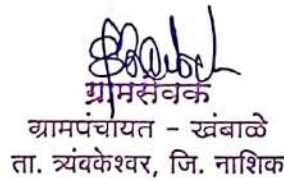 ग्रामसेवक
ग्रामपंचायत - खंबाळे
ता. त्र्यंबकेश्वर, जि. नाशिक